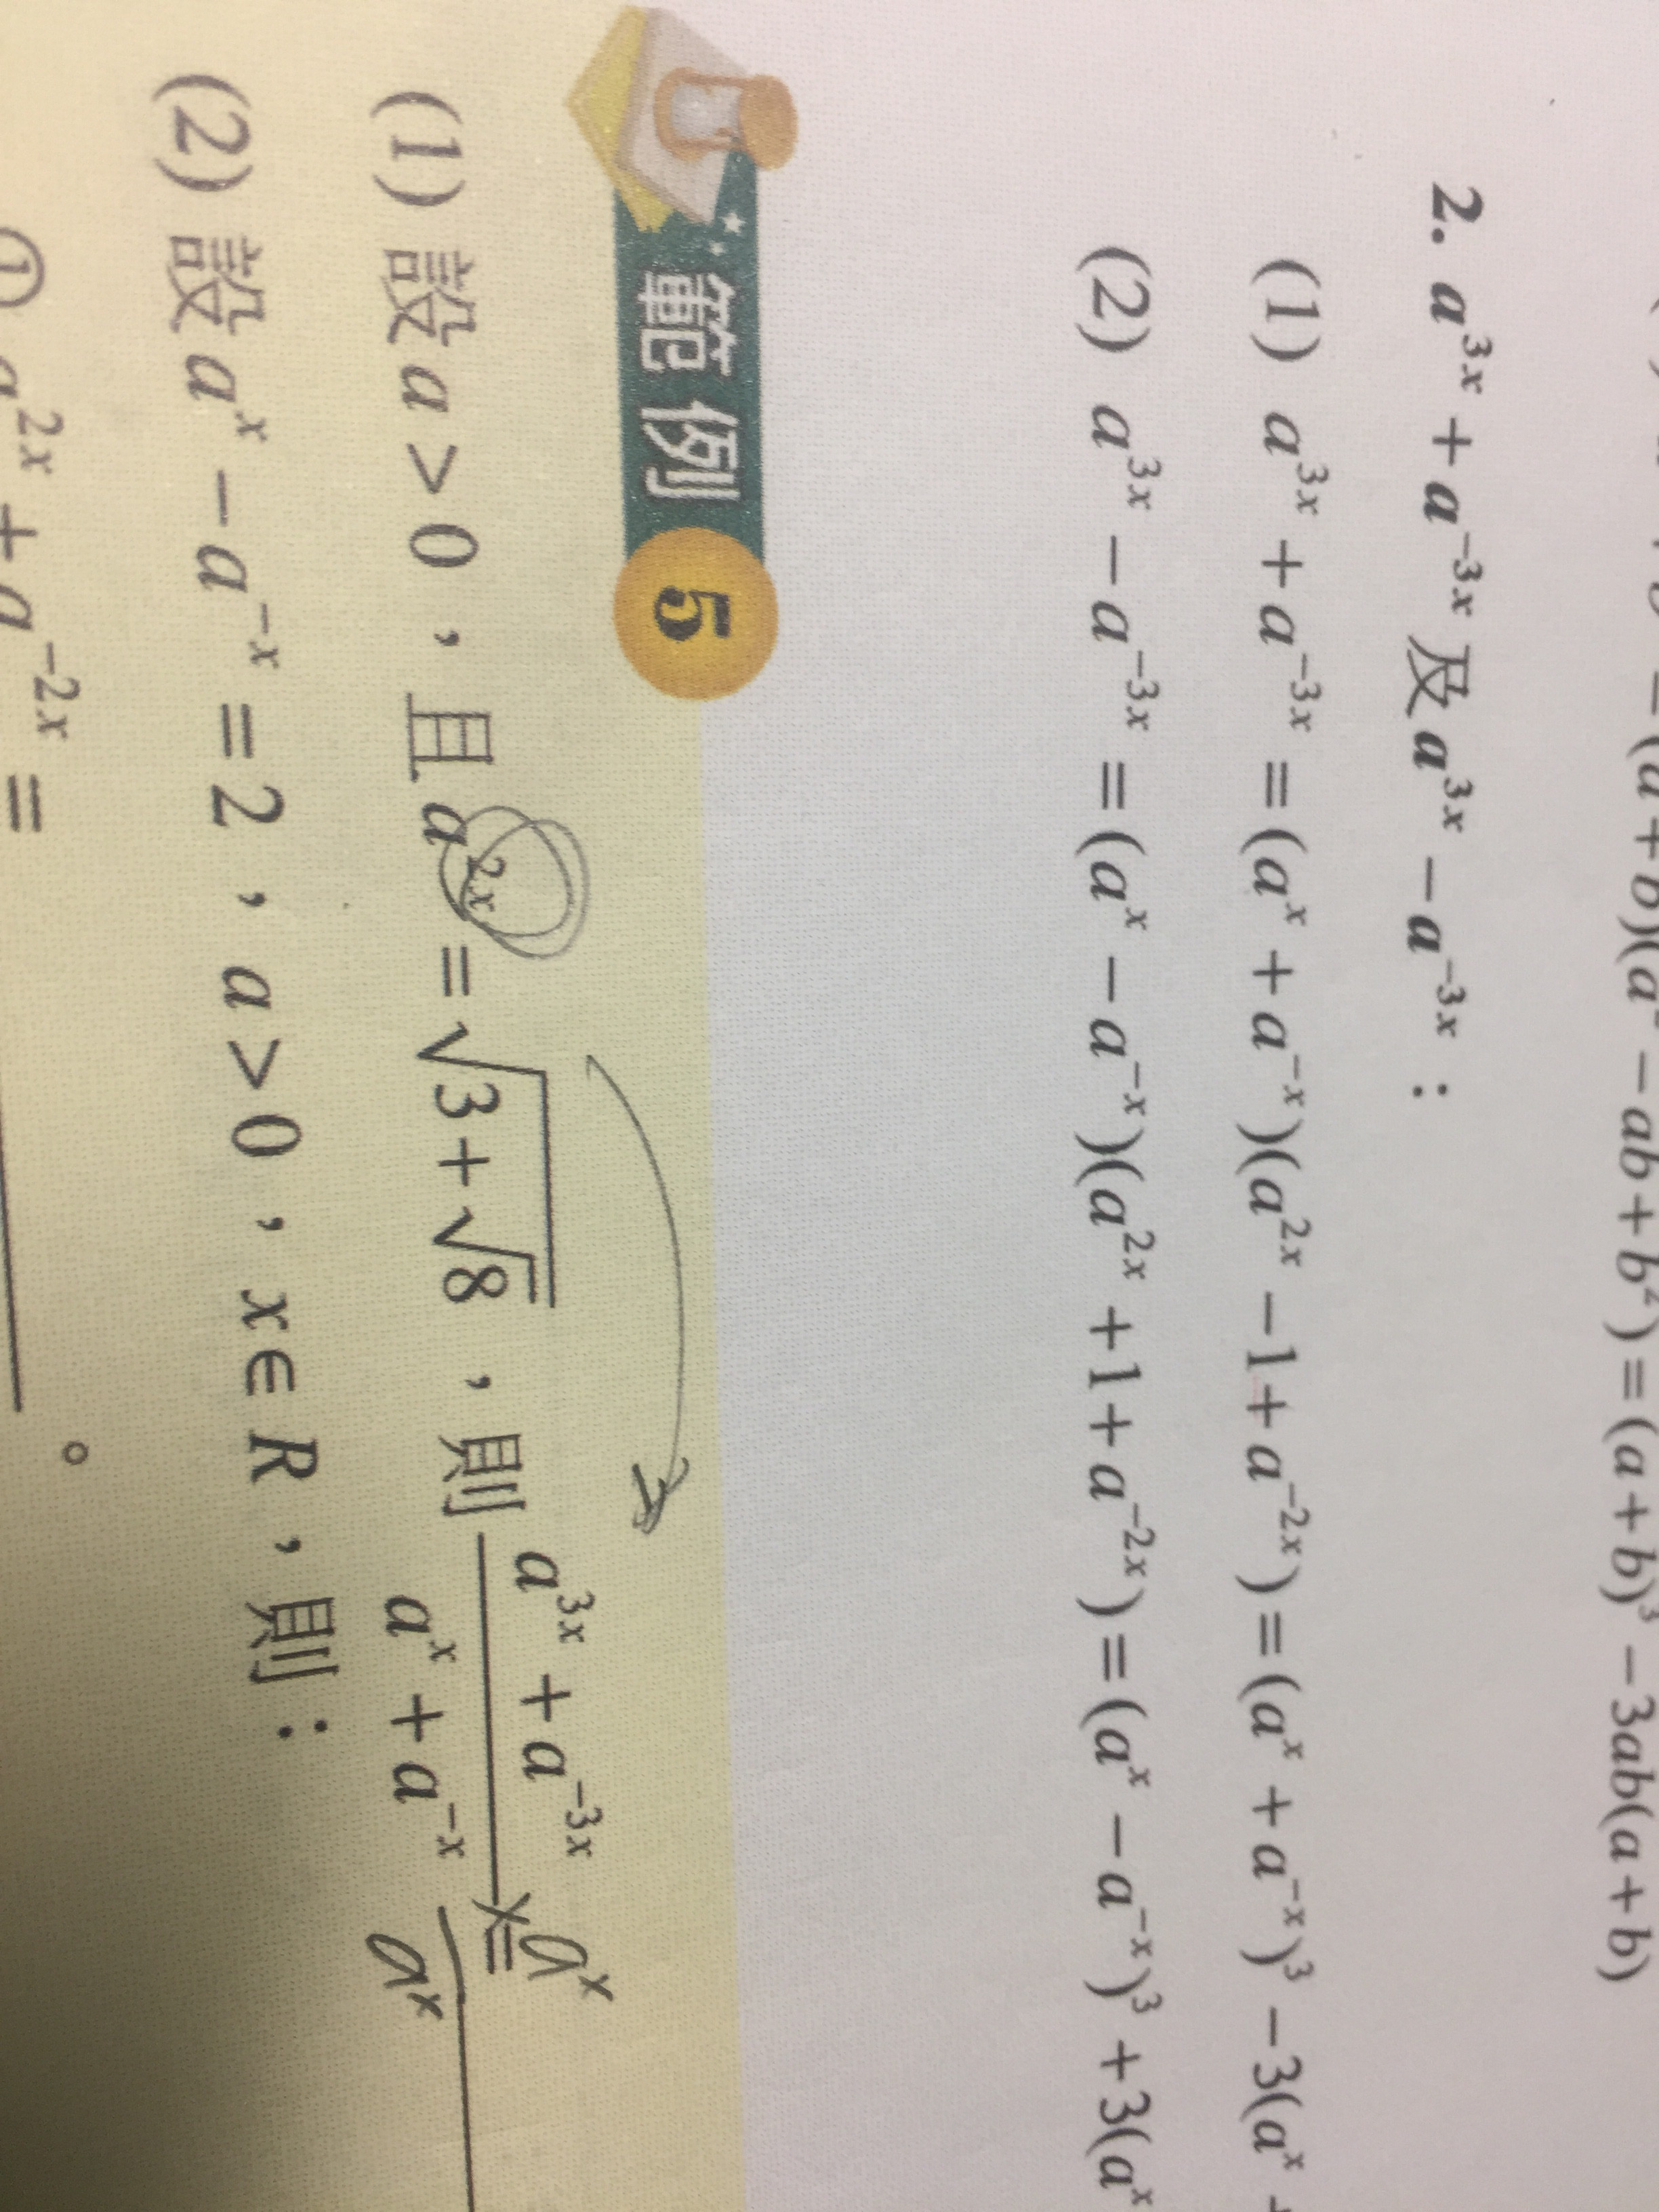 = (a + b)(a² − ab + b²) = (a + b)³ − 3ab(a + b)
2. a³ˣ + a⁻³ˣ 及 a³ˣ − a⁻³ˣ：
(1) a³ˣ + a⁻³ˣ = (aˣ + a⁻ˣ)(a²ˣ − 1 + a⁻²ˣ) = (aˣ + a⁻ˣ)³ − 3(aˣ
(2) a³ˣ − a⁻³ˣ = (aˣ − a⁻ˣ)(a²ˣ + 1 + a⁻²ˣ) = (aˣ − a⁻ˣ)³ + 3(aˣ
範例 5
(1) 設 a > 0，且 a²ˣ = √(3 + √8)，則 (a³ˣ + a⁻³ˣ)/(aˣ + a⁻ˣ) = ×aˣ/aˣ
(2) 設 aˣ − a⁻ˣ = 2，a > 0，x ∈ R，則：
① a²ˣ + a⁻²ˣ = ＿＿＿。